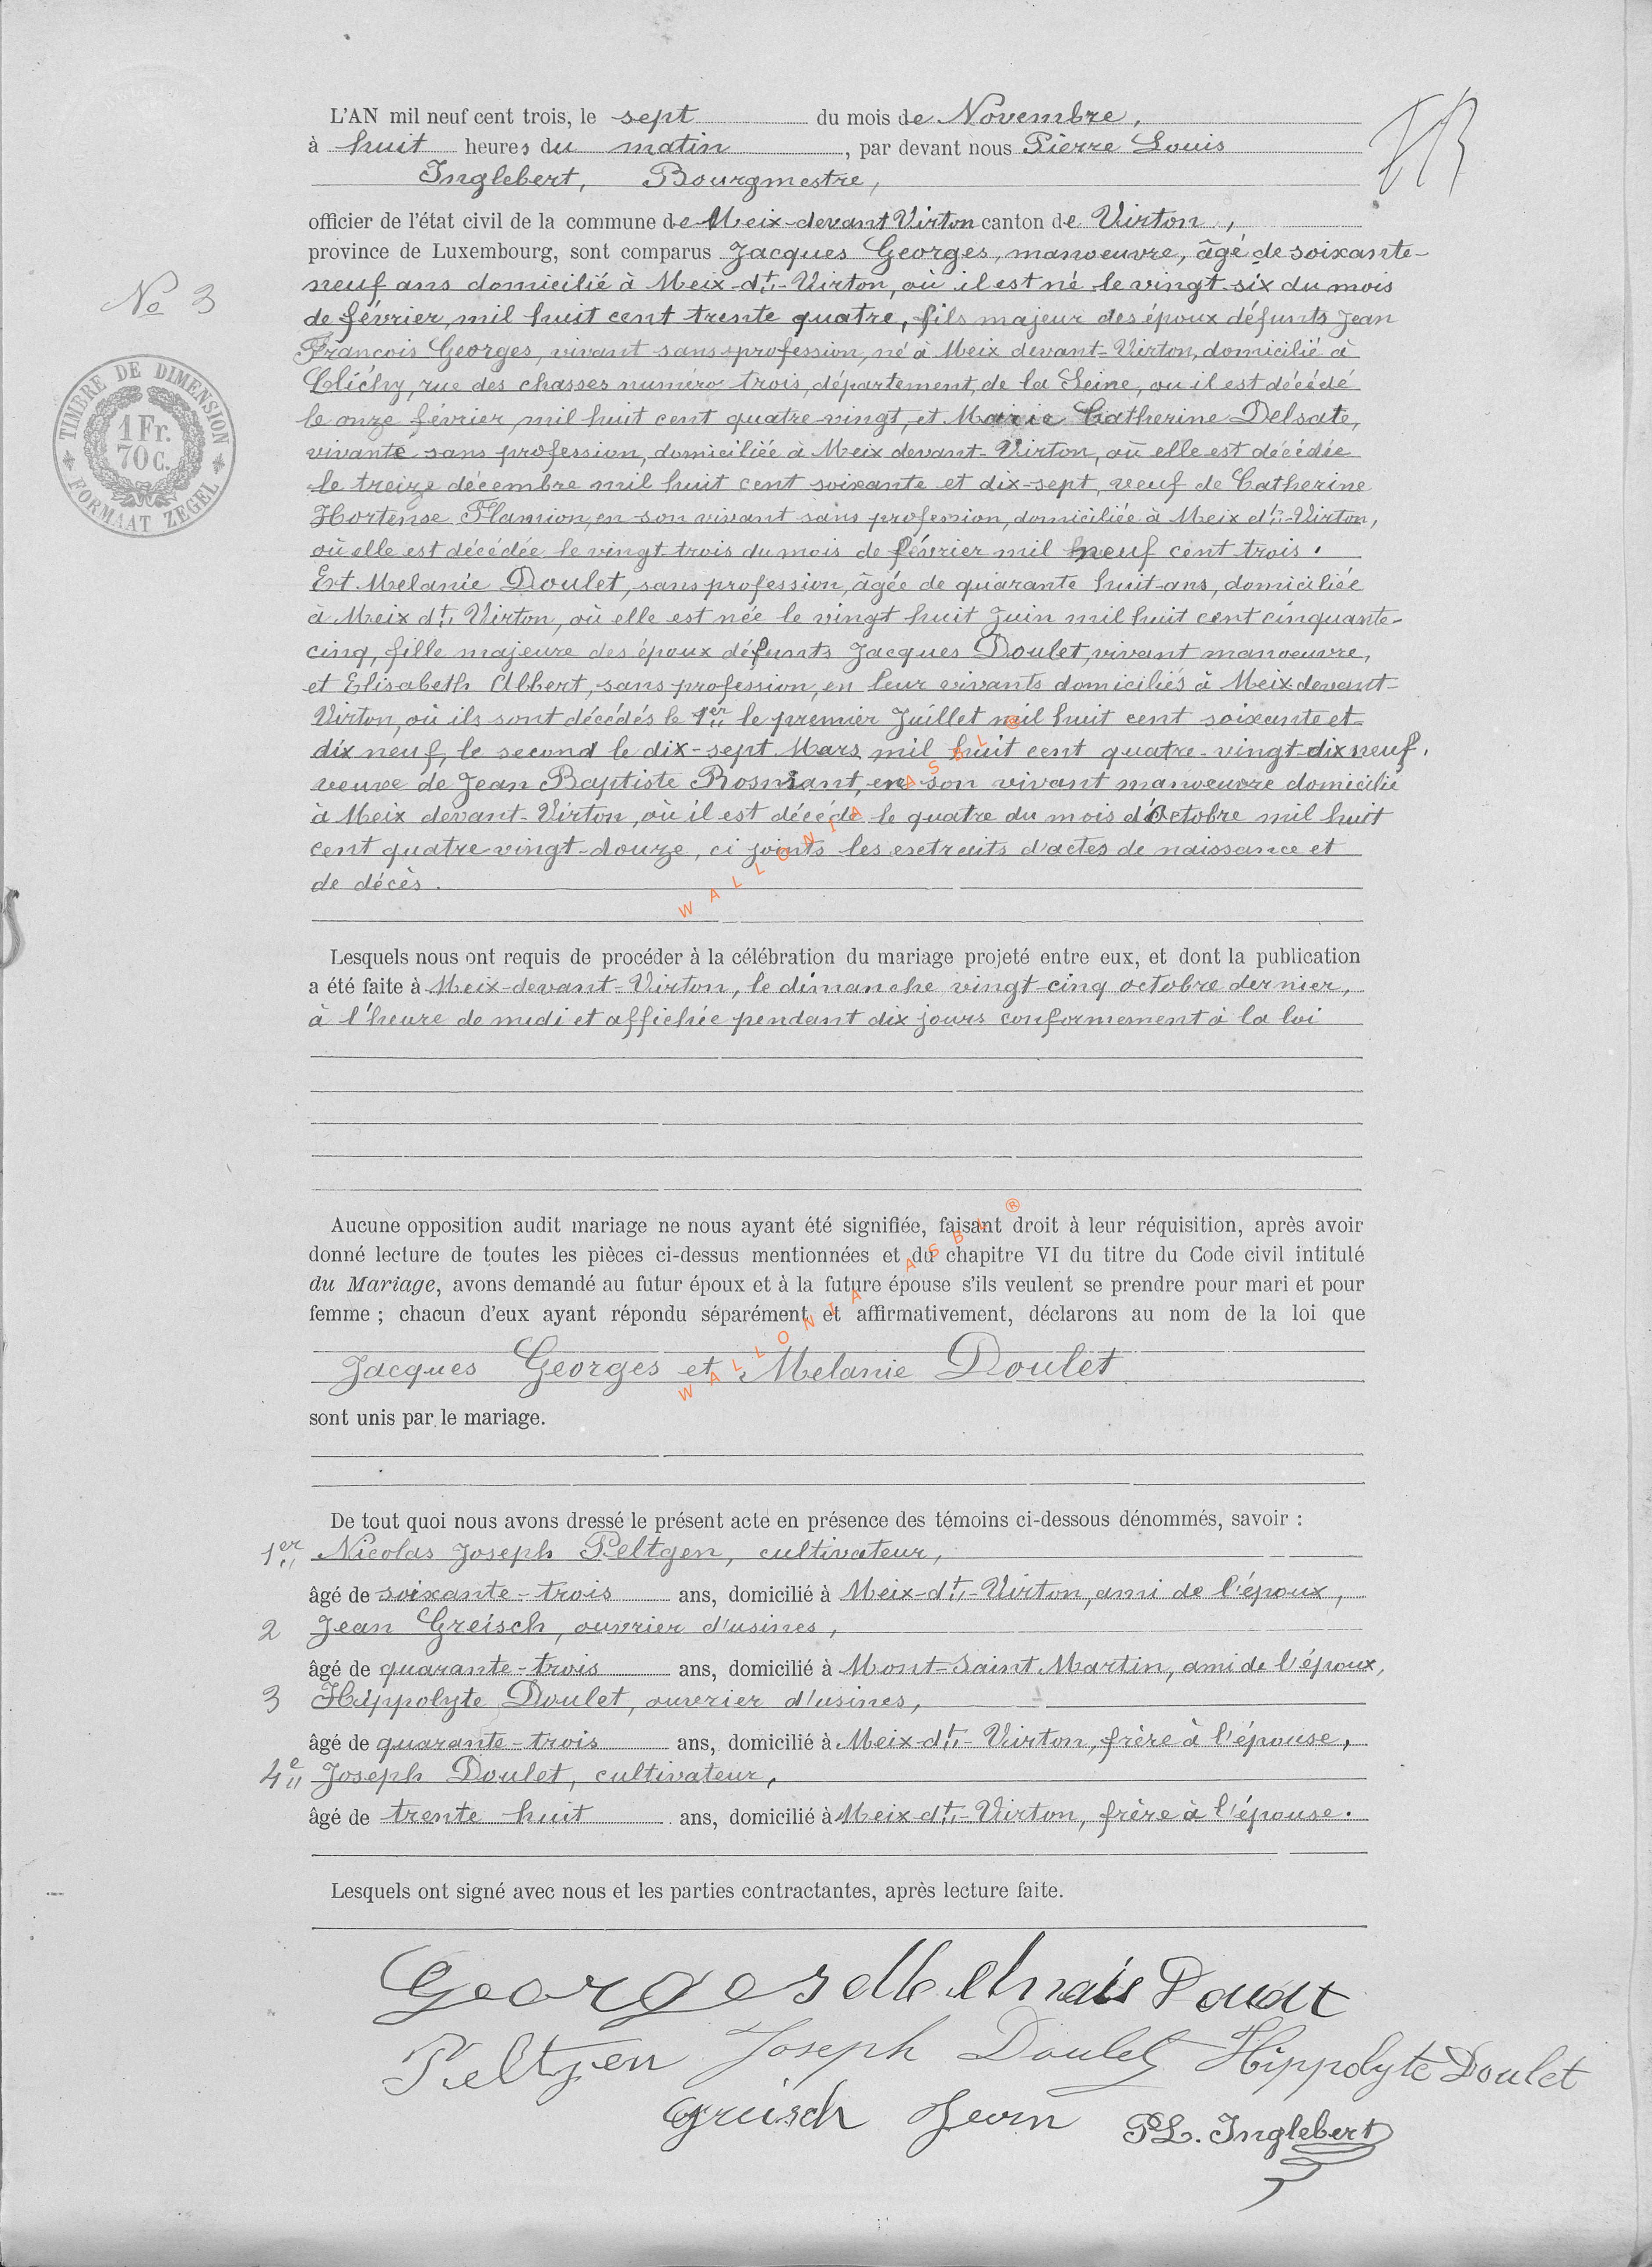 L'AN mil neuf cent trois, le sept du mois de Novembre,
à huit heures du matin, par devant nous Pierre Louis
Inglebert, Bourgmestre,
officier de l'état civil de la commune de Meix-devant Virton canton de Virton,
province de Luxembourg, sont comparus Jacques Georges, manoeuvre, âgé de soixante-
No 3
neuf ans domicilié à Meix-dt-Virton, où il est né le vingt-six du mois
de février mil huit cent trente quatre, fils majeur des époux défunts Jean
François Georges, vivant sans profession, né à Meix devant-Virton, domicilié à
Clichy, rue des chasses numéro trois, département, de la Seine, ou il est décédé
le onze février mil huit cent quatre-vingt, et Marie Catherine Delsate,
vivante sans profession, domiciliée à Meix devant-Virton, où elle est décédée
le treize décembre mil huit cent soixante et dix-sept, veuf de Catherine
Hortense Flamion, en son vivant sans profession, domiciliée à Meix dt-Virton,
où elle est décédée le vingt-trois du mois de février mil neuf cent trois.
Et Melanie Doulet, sans profession, âgée de quarante huit-ans, domiciliée
à Meix dt Virton, où elle est née le vingt huit Juin mil huit cent cinquante-
cinq, fille majeure des époux défunts Jacques Doulet, vivant manoeuvre,
et Elisabeth Albert, sans profession, en leur vivants domiciliés à Meix devant-
Virton, où ils sont décédés le 1er le premier Juillet mil huit cent soixante et
dix neuf, le second le dix-sept Mars mil huit cent quatre-vingt-dix neuf.
veuve de Jean Baptiste Rosmant, en son vivant manoeuvre domicilié
à Meix devant-Virton, où il est décédé le quatre du mois d'Octobre mil huit
cent quatre vingt-douze, ci joints les extraits d'actes de naissance et
de décès.
TIMBRE DE DIMENSION
1 Fr.
70 C.
FORMAAT ZEGEL
WALLONIA ASBL ®
Lesquels nous ont requis de procéder à la célébration du mariage projeté entre eux, et dont la publication
a été faite à Meix-devant-Virton, le dimanche vingt-cinq octobre dernier,
à l'heure de midi et affichée pendant dix jours conformement à la loi
Aucune opposition audit mariage ne nous ayant été signifiée, faisant droit à leur réquisition, après avoir
donné lecture de toutes les pièces ci-dessus mentionnées et du chapitre VI du titre du Code civil intitulé
du Mariage, avons demandé au futur époux et à la future épouse s'ils veulent se prendre pour mari et pour
femme ; chacun d'eux ayant répondu séparément et affirmativement, déclarons au nom de la loi que
Jacques Georges et Melanie Doulet
WALLONIA ASBL ®
sont unis par le mariage.
De tout quoi nous avons dressé le présent acte en présence des témoins ci-dessous dénommés, savoir :
1er Nicolas Joseph Peltgen, cultivateur,
âgé de soixante-trois ans, domicilié à Meix-dt-Virton, ami de l'époux,
2 Jean Greisch, ouvrier d'usines,
âgé de quarante-trois ans, domicilié à Mont-Saint Martin, ami de l'époux,
3 Hippolyte Doulet, ouvrier d'usines,
âgé de quarante-trois ans, domicilié à Meix-dt-Virton, frère à l'épouse,
4e Joseph Doulet, cultivateur,
âgé de trente huit ans, domicilié à Meix-dt-Virton, frère à l'épouse.
Lesquels ont signé avec nous et les parties contractantes, après lecture faite.
Georges
Peltgen Joseph Doulet Hippolyte Doulet
Greisch Jean PL. Inglebert